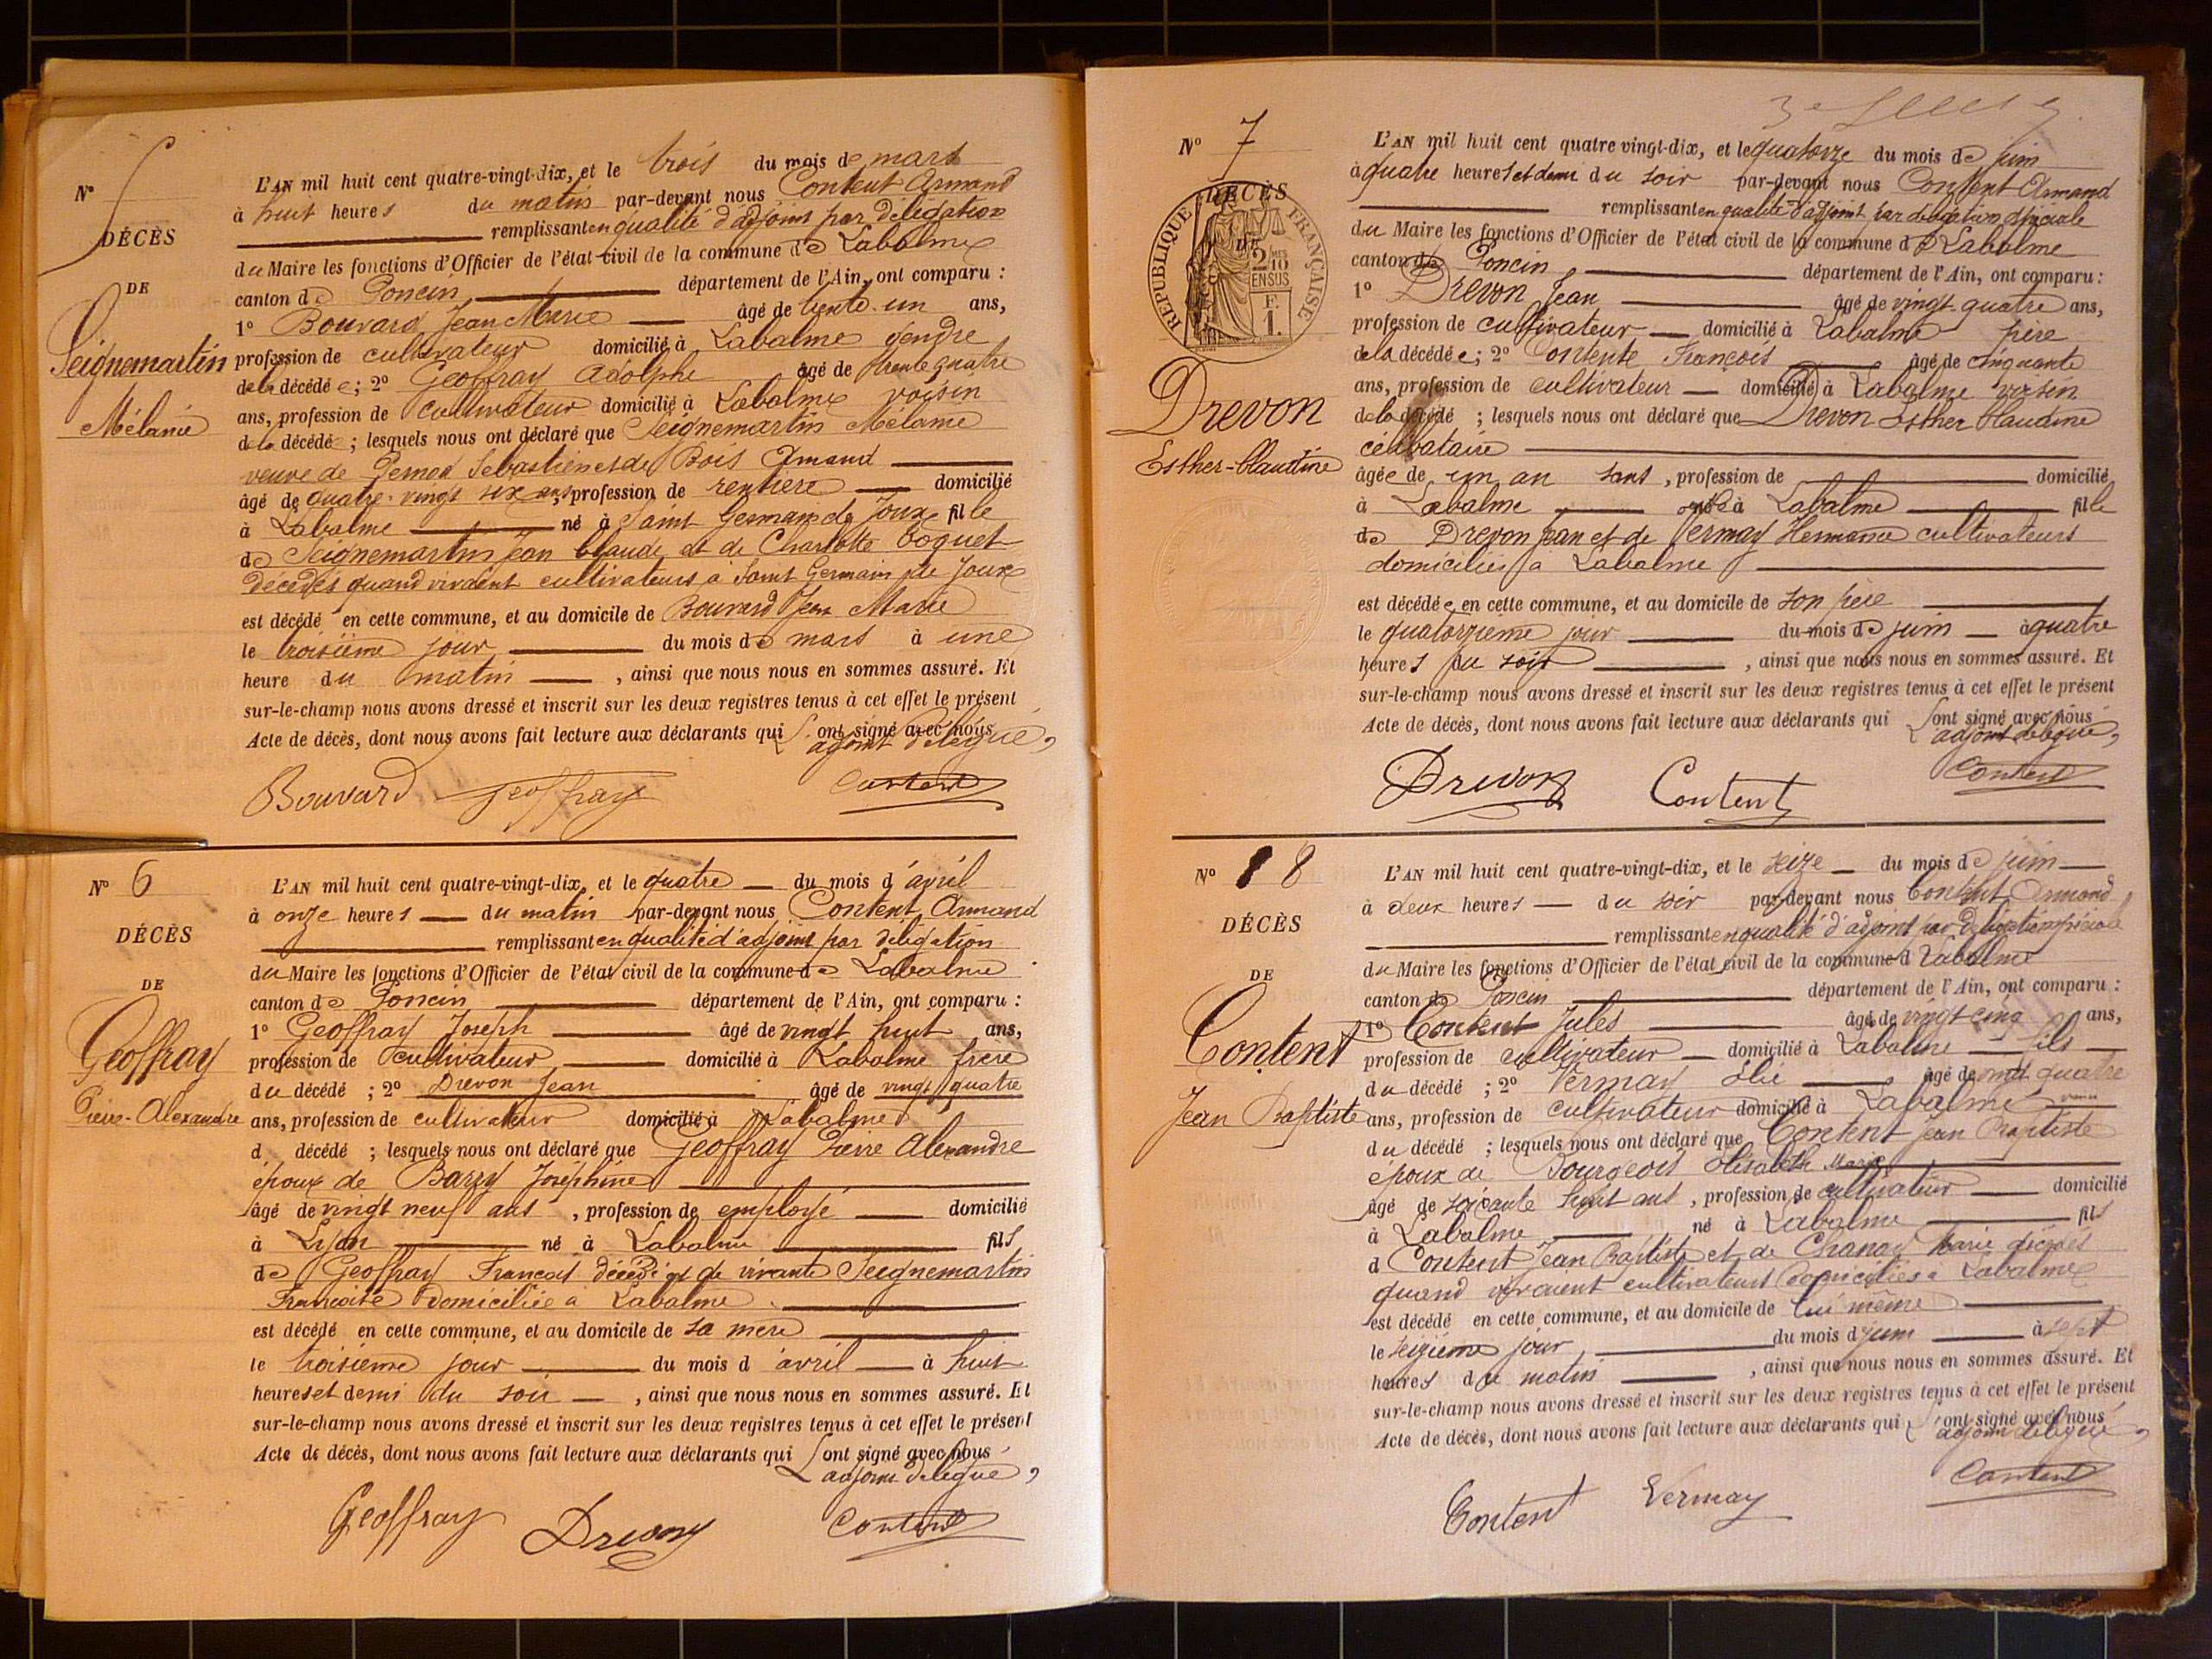 N° 5
DÉCÈS
DE
Seignemartin
Mélanie
L'AN mil huit cent quatre-vingt-dix, et le trois du mois de mars
à huit heures du matin par-devant nous Content Armand
remplissant en qualité d'adjoint par délégation
du Maire les fonctions d'Officier de l'état civil de la commune de Labalme
canton de Poncin département de l'Ain, ont comparu :
1° Bouvard Jean Marie âgé de trente-un ans,
profession de cultivateur domicilié à Labalme gendre
de la décédée ; 2° Geoffray Adolphe âgé de trente quatre
ans, profession de cultivateur domicilié à Labalme voisin
de la décédée ; lesquels nous ont déclaré que Seignemartin Mélanie
veuve de Sébastien et de Bois Amand
âgé de quatre-vingt six ans, profession de rentière domicilié
à Labalme né à Saint Germain de Joux fille
de Seignemartin Jean Claude et de Charlotte
décédés quand vivaient cultivateurs à Saint Germain de Joux
est décédé en cette commune, et au domicile de Bouvard Jean Marie
le troisième jour du mois de mars à une
heure du matin , ainsi que nous nous en sommes assuré. Et
sur-le-champ nous avons dressé et inscrit sur les deux registres tenus à cet effet le présent
Acte de décès, dont nous avons fait lecture aux déclarants qui ont signé avec nous
adjoint délégué,
Bouvard Geoffray Content
N° 6
DÉCÈS
DE
Geoffray
Pierre-Alexandre
L'AN mil huit cent quatre-vingt-dix, et le quatre du mois d'avril
à onze heures du matin par-devant nous Content Armand
remplissant en qualité d'adjoint par délégation
du Maire les fonctions d'Officier de l'état civil de la commune de Labalme
canton de Poncin département de l'Ain, ont comparu :
1° Geoffray Joseph âgé de vingt huit ans,
profession de cultivateur domicilié à Labalme frère
du décédé ; 2° Drevon Jean âgé de vingt quatre
ans, profession de cultivateur domicilié à Labalme
d décédé ; lesquels nous ont déclaré que Geoffray Pierre Alexandre
époux de Joséphine
âgé de vingt neuf ans , profession de employé domicilié
à Lyon né à Labalme fils
de Geoffray François décédé et de vivante Seignemartin
Françoise domiciliée à Labalme
est décédé en cette commune, et au domicile de sa mère
le troisième jour du mois d'avril à huit
heures et demi du soir , ainsi que nous nous en sommes assuré. Et
sur-le-champ nous avons dressé et inscrit sur les deux registres tenus à cet effet le présent
Acte de décès, dont nous avons fait lecture aux déclarants qui ont signé avec nous
adjoint délégué,
Geoffray Drevon Content
N° 7
DÉCÈS
DE
RÉPUBLIQUE FRANÇAISE
2 10
EN SUS
F. 1.
Drevon
Esther-Claudine
L'AN mil huit cent quatre vingt-dix, et le quatorze du mois de juin
à quatre heures et demi du soir par-devant nous Content Armand
remplissant en qualité d'adjoint par délégation spéciale
du Maire les fonctions d'Officier de l'état civil de la commune de Labalme
canton de Poncin département de l'Ain, ont comparu :
1° Drevon Jean âgé de vingt-quatre ans,
profession de cultivateur domicilié à Labalme père
de la décédée ; 2° Contente François âgé de cinquante
ans, profession de cultivateur domicilié à Labalme voisin
de la décédé ; lesquels nous ont déclaré que Drevon Esther Claudine
célibataire
âgée de un an sans , profession de domicilié
à Labalme née à Labalme fille
de Drevon Jean et de Vermay cultivateurs
domiciliés à Labalme
est décédée en cette commune, et au domicile de son père
le quatorzième jour du mois de juin à quatre
heures du soir , ainsi que nous nous en sommes assuré. Et
sur-le-champ nous avons dressé et inscrit sur les deux registres tenus à cet effet le présent
Acte de décès, dont nous avons fait lecture aux déclarants qui ont signé avec nous
adjoint délégué,
Drevon Content Content
N° 8
DÉCÈS
DE
Content
Jean Baptiste
L'AN mil huit cent quatre-vingt-dix, et le seize du mois de juin
à deux heures du soir par-devant nous Content Armand
remplissant en qualité d'adjoint par délégation spéciale
du Maire les fonctions d'Officier de l'état civil de la commune d Labalme
canton de Poncin département de l'Ain, ont comparu :
1° Content Jules âgé de vingt cinq ans,
profession de cultivateur domicilié à Labalme fils
du décédé ; 2° Vermay Élie âgé de vingt quatre
ans, profession de cultivateur domicilié à Labalme
du décédé ; lesquels nous ont déclaré que Content Jean Baptiste
époux de Bourgeois Élisabeth Marie
âgé de soixante huit ans , profession de cultivateur domicilié
à Labalme né à Labalme fils
d Content Jean Baptiste et de Chanay Marie décédés
quand vivaient cultivateurs domiciliés à Labalme
est décédé en cette commune, et au domicile de lui même
le seizième jour du mois d juin à sept
heures du matin , ainsi que nous nous en sommes assuré. Et
sur-le-champ nous avons dressé et inscrit sur les deux registres tenus à cet effet le présent
Acte de décès, dont nous avons fait lecture aux déclarants qui ont signé avec nous
adjoint délégué,
Content Vermay Content